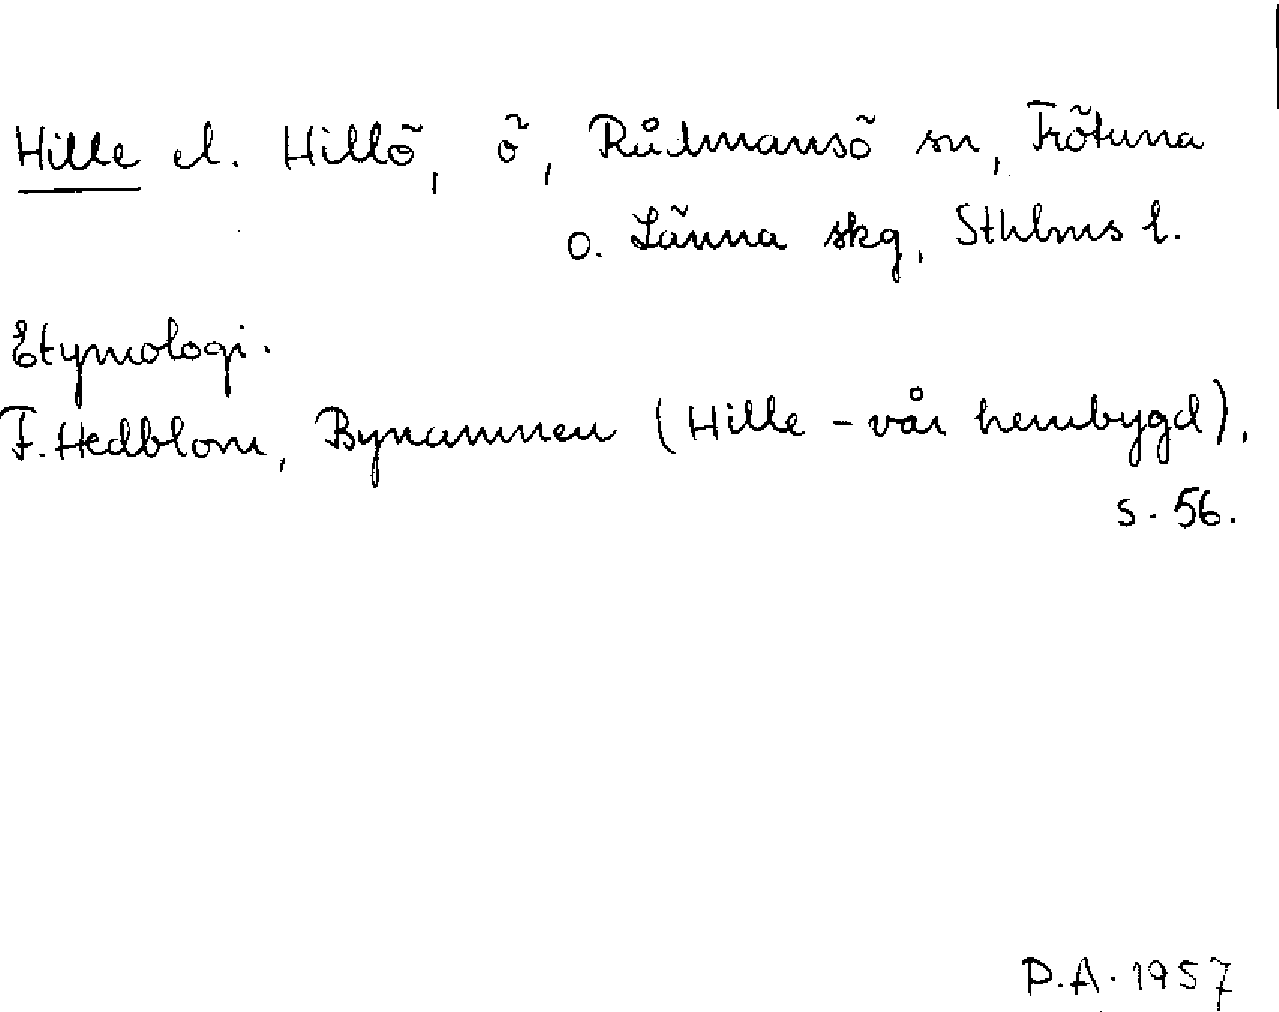 Hille el. Hillö, ö, Rådmansö sn, Frötuna
o. Länna skg, Sthlms l.
Etymologi.
F. Hedblom, Bynamnen (Hille - vår hembygd),
s. 56.
P.A. 1957